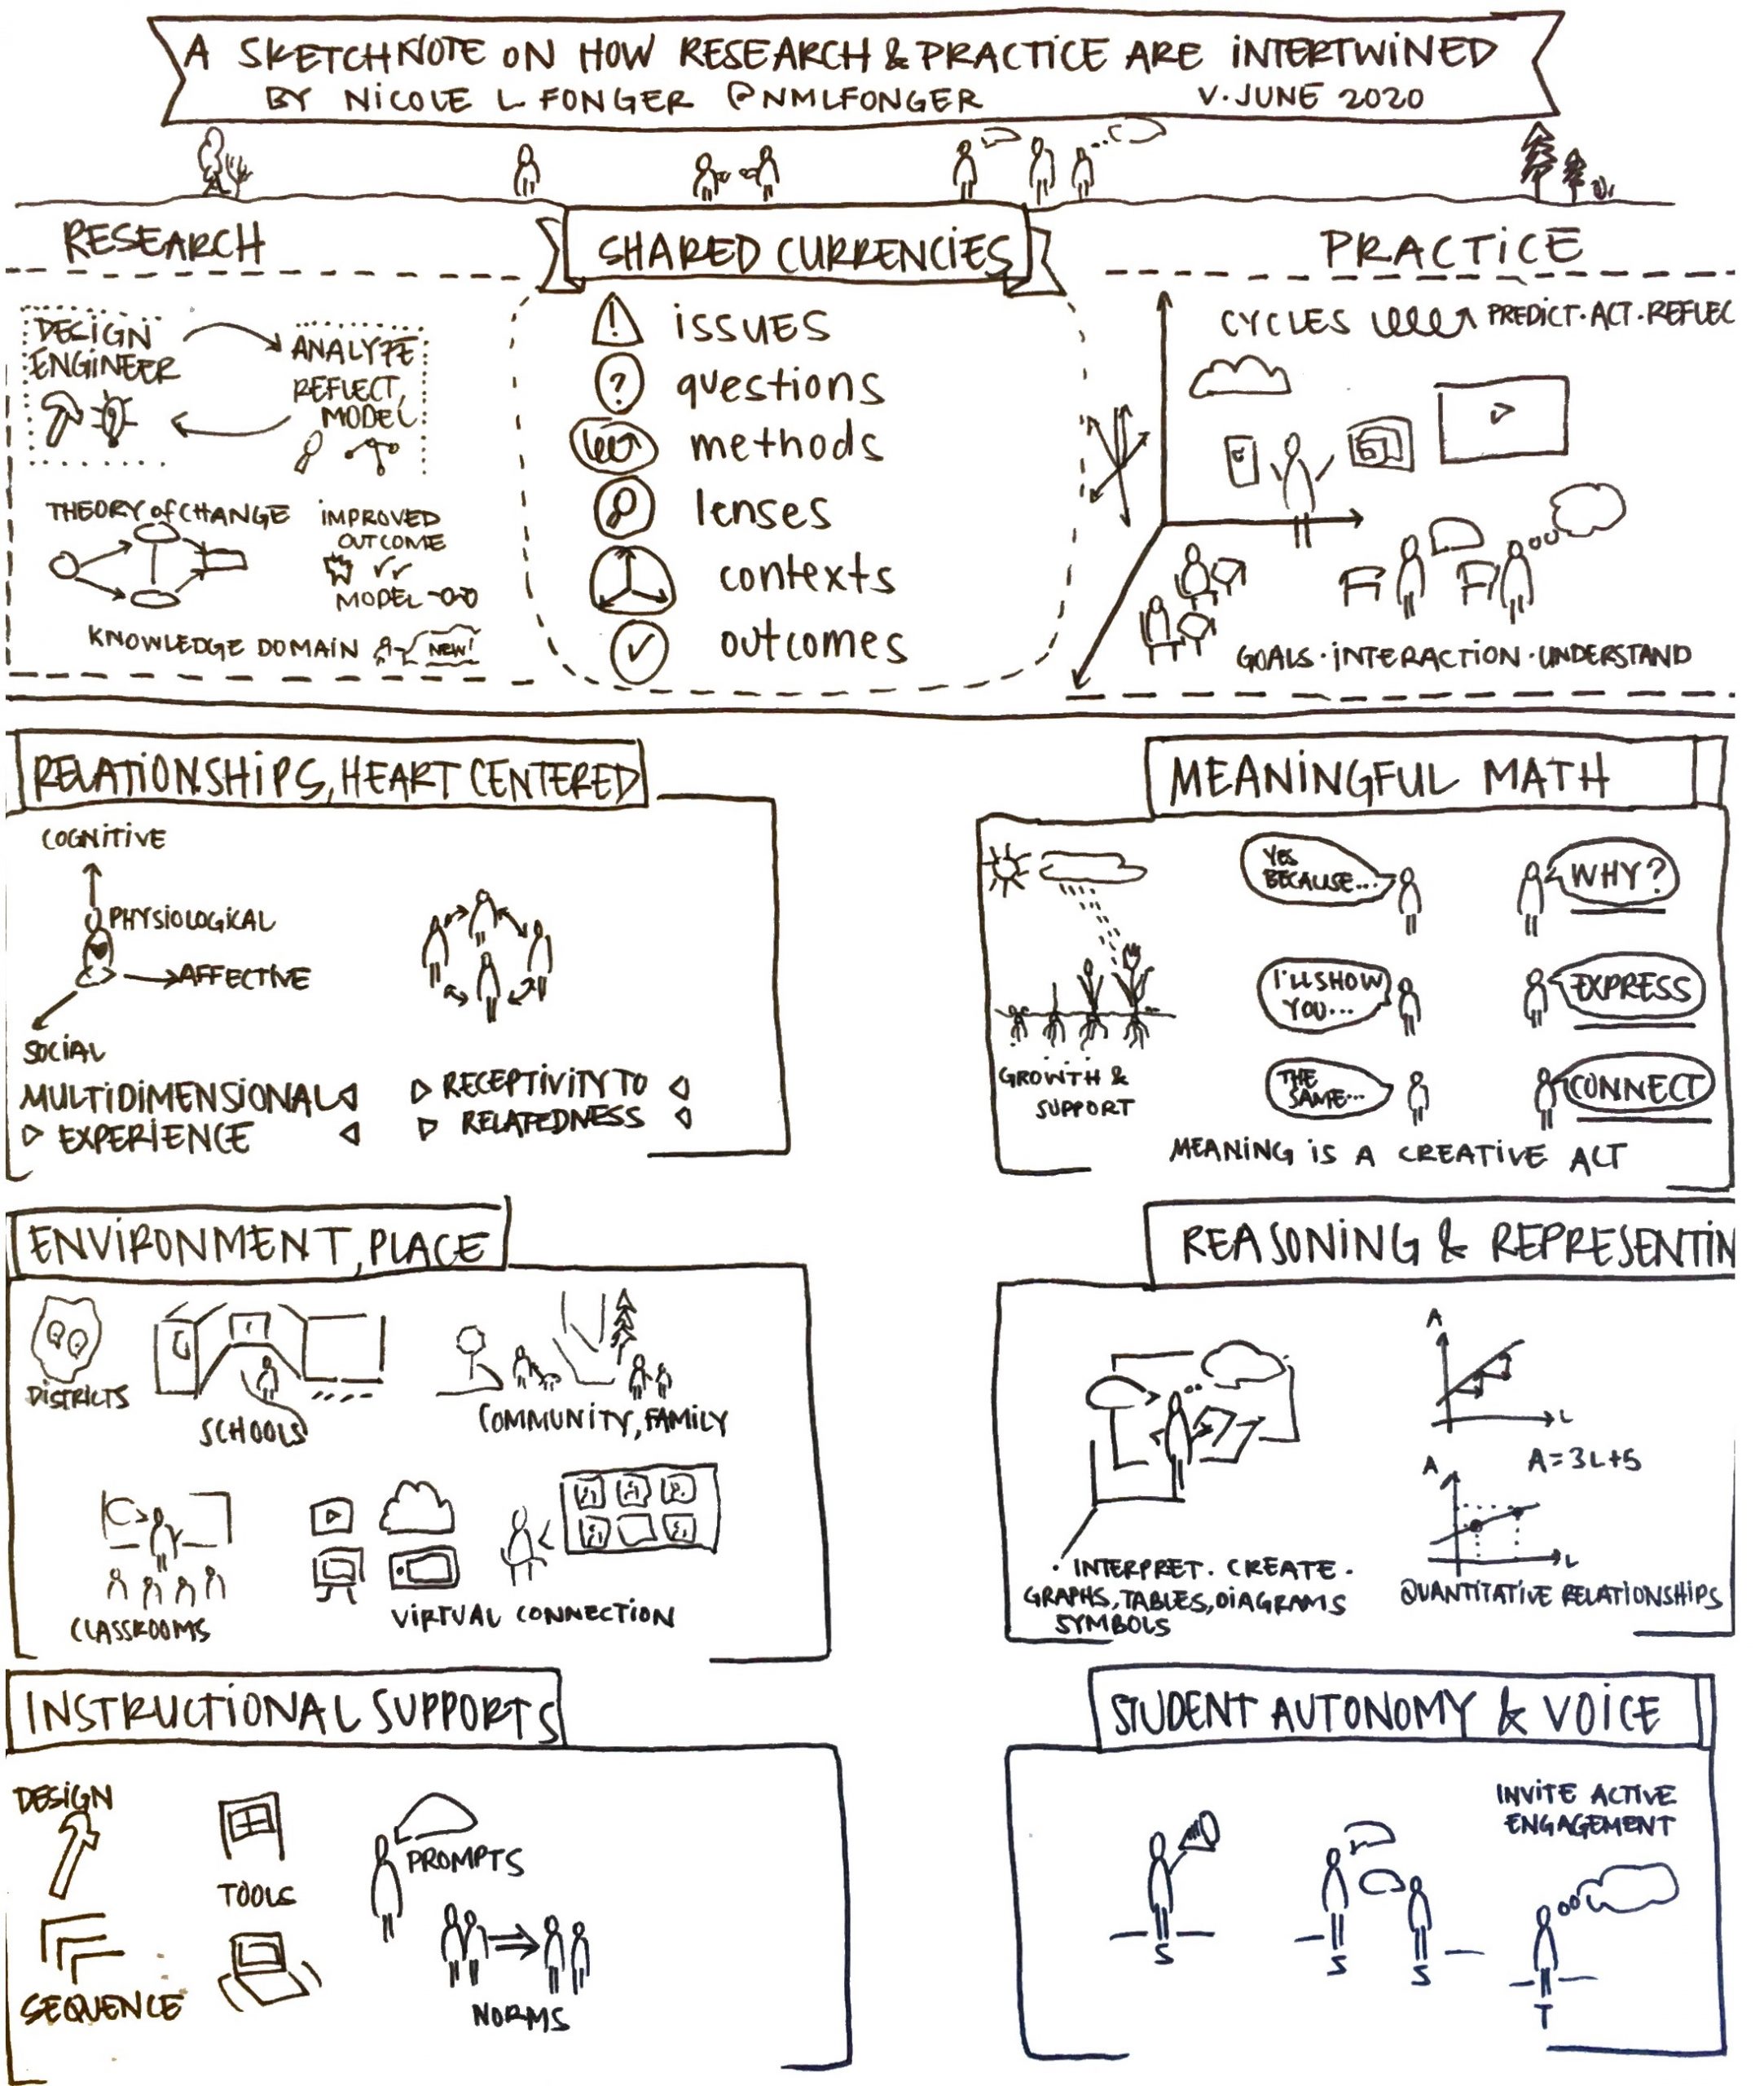 A SKETCHNOTE ON HOW RESEARCH & PRACTICE ARE INTERTWINED
BY NICOLE L FONGER @NMLFONGER V. JUNE 2020
RESEARCH
DESIGN
ENGINEER
ANALYZE
REFLECT,
MODEL
THEORY of CHANGE
IMPROVED
OUTCOME
MODEL
KNOWLEDGE DOMAIN
NEW!
SHARED CURRENCIES
issues
? questions
methods
lenses
contexts
outcomes
PRACTICE
CYCLES PREDICT·ACT·REFLEC
GOALS·INTERACTION·UNDERSTAND
RELATIONSHIPS, HEART CENTERED
COGNITIVE
PHYSIOLOGICAL
AFFECTIVE
SOCIAL
MULTIDIMENSIONAL
EXPERIENCE
RECEPTIVITY TO
RELATEDNESS
MEANINGFUL MATH
YES
BECAUSE...
WHY?
I'LL SHOW
YOU...
EXPRESS
THE
SAME...
CONNECT
GROWTH &
SUPPORT
MEANING IS A CREATIVE ACT
ENVIRONMENT, PLACE
DISTRICTS
SCHOOLS
COMMUNITY, FAMILY
CLASSROOMS
VIRTUAL CONNECTION
REASONING & REPRESENTIN
A
L
A = 3L+5
A
L
· INTERPRET. CREATE ·
GRAPHS, TABLES, DIAGRAMS
SYMBOLS
QUANTITATIVE RELATIONSHIPS
INSTRUCTIONAL SUPPORTS
DESIGN
TOOLS
PROMPTS
SEQUENCE
NORMS
STUDENT AUTONOMY & VOICE
INVITE ACTIVE
ENGAGEMENT
S
S
S
T